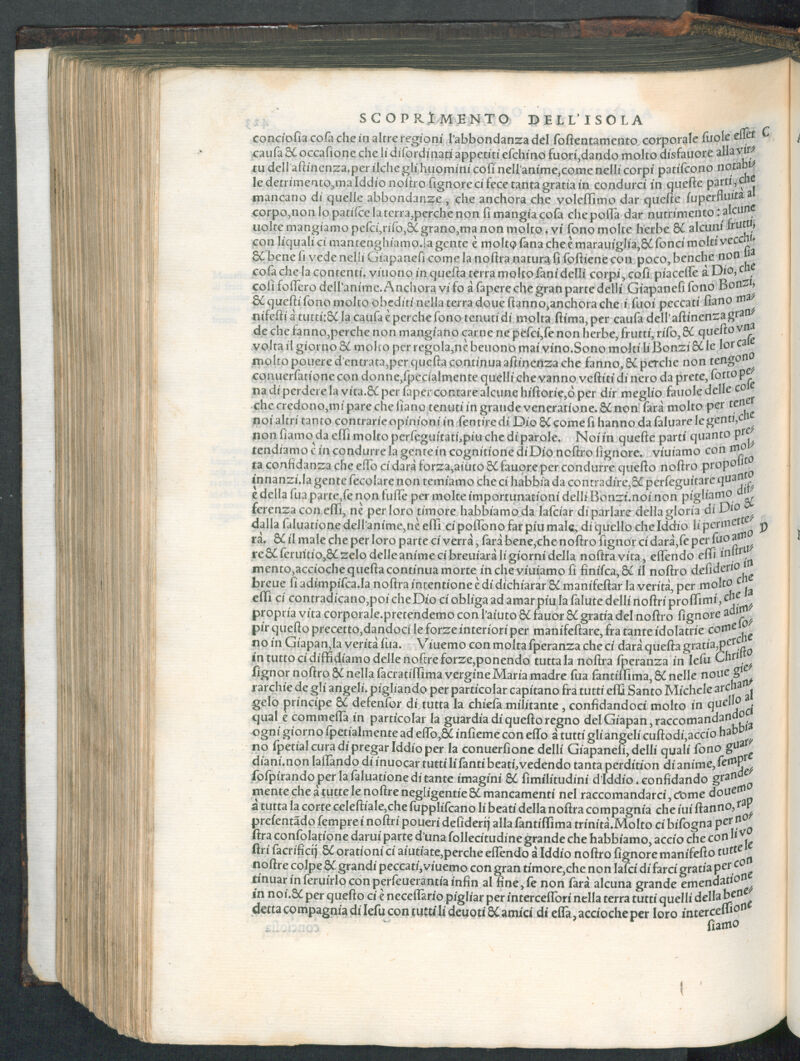 SCOPRIMENTO DELL'ISOLA
conciosia cosa che in altre regioni l'abbondanza del sostentamento corporale suole esser C
causa & occasione che li disordinati appetiti eschino fuori, dando molto disfauore alla vir⸗
tu dell'astinenza, per ilche gli huomini cosi nell'anime, come nelli corpi patiscono notabi⸗
le detrimento, ma Iddio nostro signore ci fece tanta gratia in condurci in queste parti, che
mancano di quelle abbondanze, che anchora che volessimo dar queste superfluità al
corpo, non lo patisce la terra, perche non si mangia cosa che possa dar nutrimento: alcune
uolte mangiamo pesci, riso, & grano, ma non molto, vi sono molte herbe & alcuni frutti,
con liquali ci mantenghiamo. la gente è molto sana che è marauiglia, & sonci molti vecchi.
& bene si vede nelli Giapanesi come la nostra natura si sostiene con poco, benche non sia
cosa che la contenti. viuono in questa terra molto sani delli corpi, cosi piacesse à Dio, che
cosi fossero dell'anime. Anchora vi fo à sapere che gran parte delli Giapanesi sono Bonzi,
& questi sono molto obediti nella terra doue stanno, anchora che i suoi peccati siano ma⸗
nifesti à tutti: & la causa è perche sono tenuti di molta stima, per causa dell'astinenza gran⸗
de che fanno, perche non mangiano carne ne pesci, se non herbe, frutti, riso, & questo vna
volta il giorno & molto per regola, nè beuono mai vino. Sono molti li Bonzi & le lor case
molto pouere d'entrata, per questa continua astinenza che fanno, & perche non tengono
conuersatione con donne, specialmente quelli che vanno vestiti di nero da prete, sotto pe⸗
na di perdere la vita. & per saper contare alcune historie, ò per dir meglio fauole delle cose
che credono, mi pare che siano tenuti in grande veneratione. & non sarà molto per tener
noi altri tanto contrarie opinioni in sentire di Dio & come si hanno da saluare le genti, che
non siamo da essi molto perseguitati, piu che di parole. Noi in queste parti quanto pre⸗
tendiamo è in condurre la gente in cognitione di Dio nostro signore. viuiamo con mol⸗
ta confidanza che esso ci darà forza, aiuto & fauore per condurre questo nostro proposito
innanzi. la gente secolare non temiamo che ci habbia da contradire, & perseguitare quanto
è della sua parte, se non fusse per molte importunationi delli Bonzi. noi non pigliamo dif⸗
ferenza con essi, nè per loro timore habbiamo da lasciar di parlare della gloria di Dio &
dalla saluatione dell'anime, nè essi ci possono far piu male, di quello che Iddio li permette⸗ D
rà. & il male che per loro parte ci verrà, sarà bene, che nostro signor ci darà, se per suo amo
re & seruitio, & zelo delle anime ci breuiarà li giorni della nostra vita, essendo essi instru⸗
mento, accioche questa continua morte in che viuiamo si finisca, & il nostro desiderio in
breue si adimpisca. la nostra intentione è di dichiarar & manifestar la verità, per molto che
essi ci contradicano, poi che Dio ci obliga ad amar piu la salute delli nostri prossimi, che la
propria vita corporale. pretendemo con l'aiuto & fauor & gratia del nostro signore adim⸗
pir questo precetto, dandoci le forze interiori per manifestare, fra tante idolatrie come so⸗
no in Giapan, la verità sua. Viuemo con molta speranza che ci darà questa gratia, perche
in tutto ci diffidiamo delle nostre forze, ponendo tutta la nostra speranza in Iesu Christo
signor nostro & nella sacratissima vergine Maria madre sua santissima, & nelle noue gie⸗
rarchie de gli angeli. pigliando per particolar capitano fra tutti essi Santo Michele archan⸗
gelo principe & defensor di tutta la chiesa militante, confidandoci molto in quello al
qual è commessa in particolar la guardia di questo regno del Giapan, raccomandandoci
ogni giorno spetialmente ad esso, & insieme con esso à tutti gli angeli custodi, accio habbia
no spetial cura di pregar Iddio per la conuersione delli Giapanesi, delli quali sono guar⸗
diani. non lassando di inuocar tutti li santi beati, vedendo tanta perdition di anime, sempre
sospirando per la saluatione di tante imagini & similitudini d'Iddio. confidando grande⸗
mente che à tutte le nostre negligentie & mancamenti nel raccomandarci, come douemo
à tutta la corte celestiale, che supplíscano li beati della nostra compagnia che iui stanno, rap
presentãdo sempre i nostri poueri desiderij alla santissima trinità. Molto ci bisogna per no⸗
stra consolatione darui parte d'una sollecitudine grande che habbiamo, accio che con li vo
stri sacrificij & orationi ci aiutiate, perche essendo à Iddio nostro signore manifesto tutte le
nostre colpe & grandi peccati, viuemo con gran timore, che non lasci di farci gratia per con
tinuar in seruirlo con perseuerantia infin al fine, se non sarà alcuna grande emendatione
in noi. & per questo ci è necessario pigliar per intercessori nella terra tutti quelli della bene⸗
detta compagnia di Iesu con tutti li deuoti & amici di essa, accioche per loro intercessione
siamo